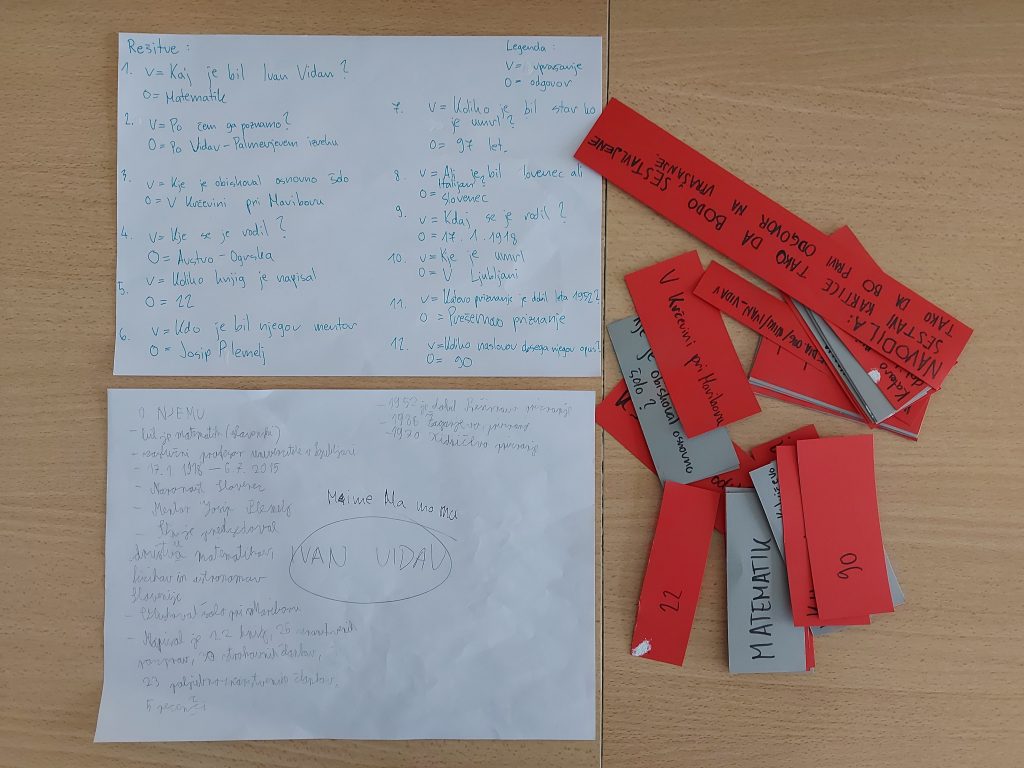 Rešitve :
Legenda :
V = vprašanje
O = odgovor
1. V = Kaj je bil Ivan Vidav ?
O = Matematik
2. V = Po čem ga poznamo ?
O = Po Vidav - Palmerjevem izreku
3. V = Kje je obiskoval osnovno šolo
O = V Krčevini pri Mariboru
4. V = Kje se je rodil ?
O = Avstro - Ogrska
5. V = Koliko knjig je napisal
O = 22
6. V = Kdo je bil njegov mentor
O = Josip Plemelj
7. V = Koliko je bil star ko
je umrl ?
O = 97 let.
8. V = Ali je bil lovenec ali
Italijan ?
O = Slovenec
9. V = Kdaj se je rodil ?
O = 17. 1. 1918
10. V = Kje je umrl
O = V Ljubljani
11. V = Katero priznanje je dobil leta 1952 ?
O = Prešernovo priznanje
12. V = Koliko naslovov dosega njegov opus ?
O = 90
O NJEMU
- bil je matematik (slovenski)
- profesor univerze v Ljubljani
- 17. 1. 1918 - 6. 7. 2015
- Narodnost Slovenec
- Mentor Josip Plemelj
- je predsedoval
društvu matematikov
fizikov in astronomov
Slovenije
- šolo pri Mariboru
- Napisal je 22 knjig, 26 znanstvenih
razprav, strokovnih člankov,
23 poljudno-znanstvenih člankov,
5 recenzij
- 1952 je dobil Prešernovo priznanje
- 1986
- 1970
IVAN VIDAV
NAVODILA:
SESTAVI KARTICE TAKO DA BODO SESTAVLJENE
TAKO DA BO PRAVI ODGOVOR NA VPRAŠANJE.
V Krčevini pri Mariboru
/WIKI/IVAN_VIDAV
je obiskoval osnovno
šolo ?
Katero
22
MATEMATIK
90